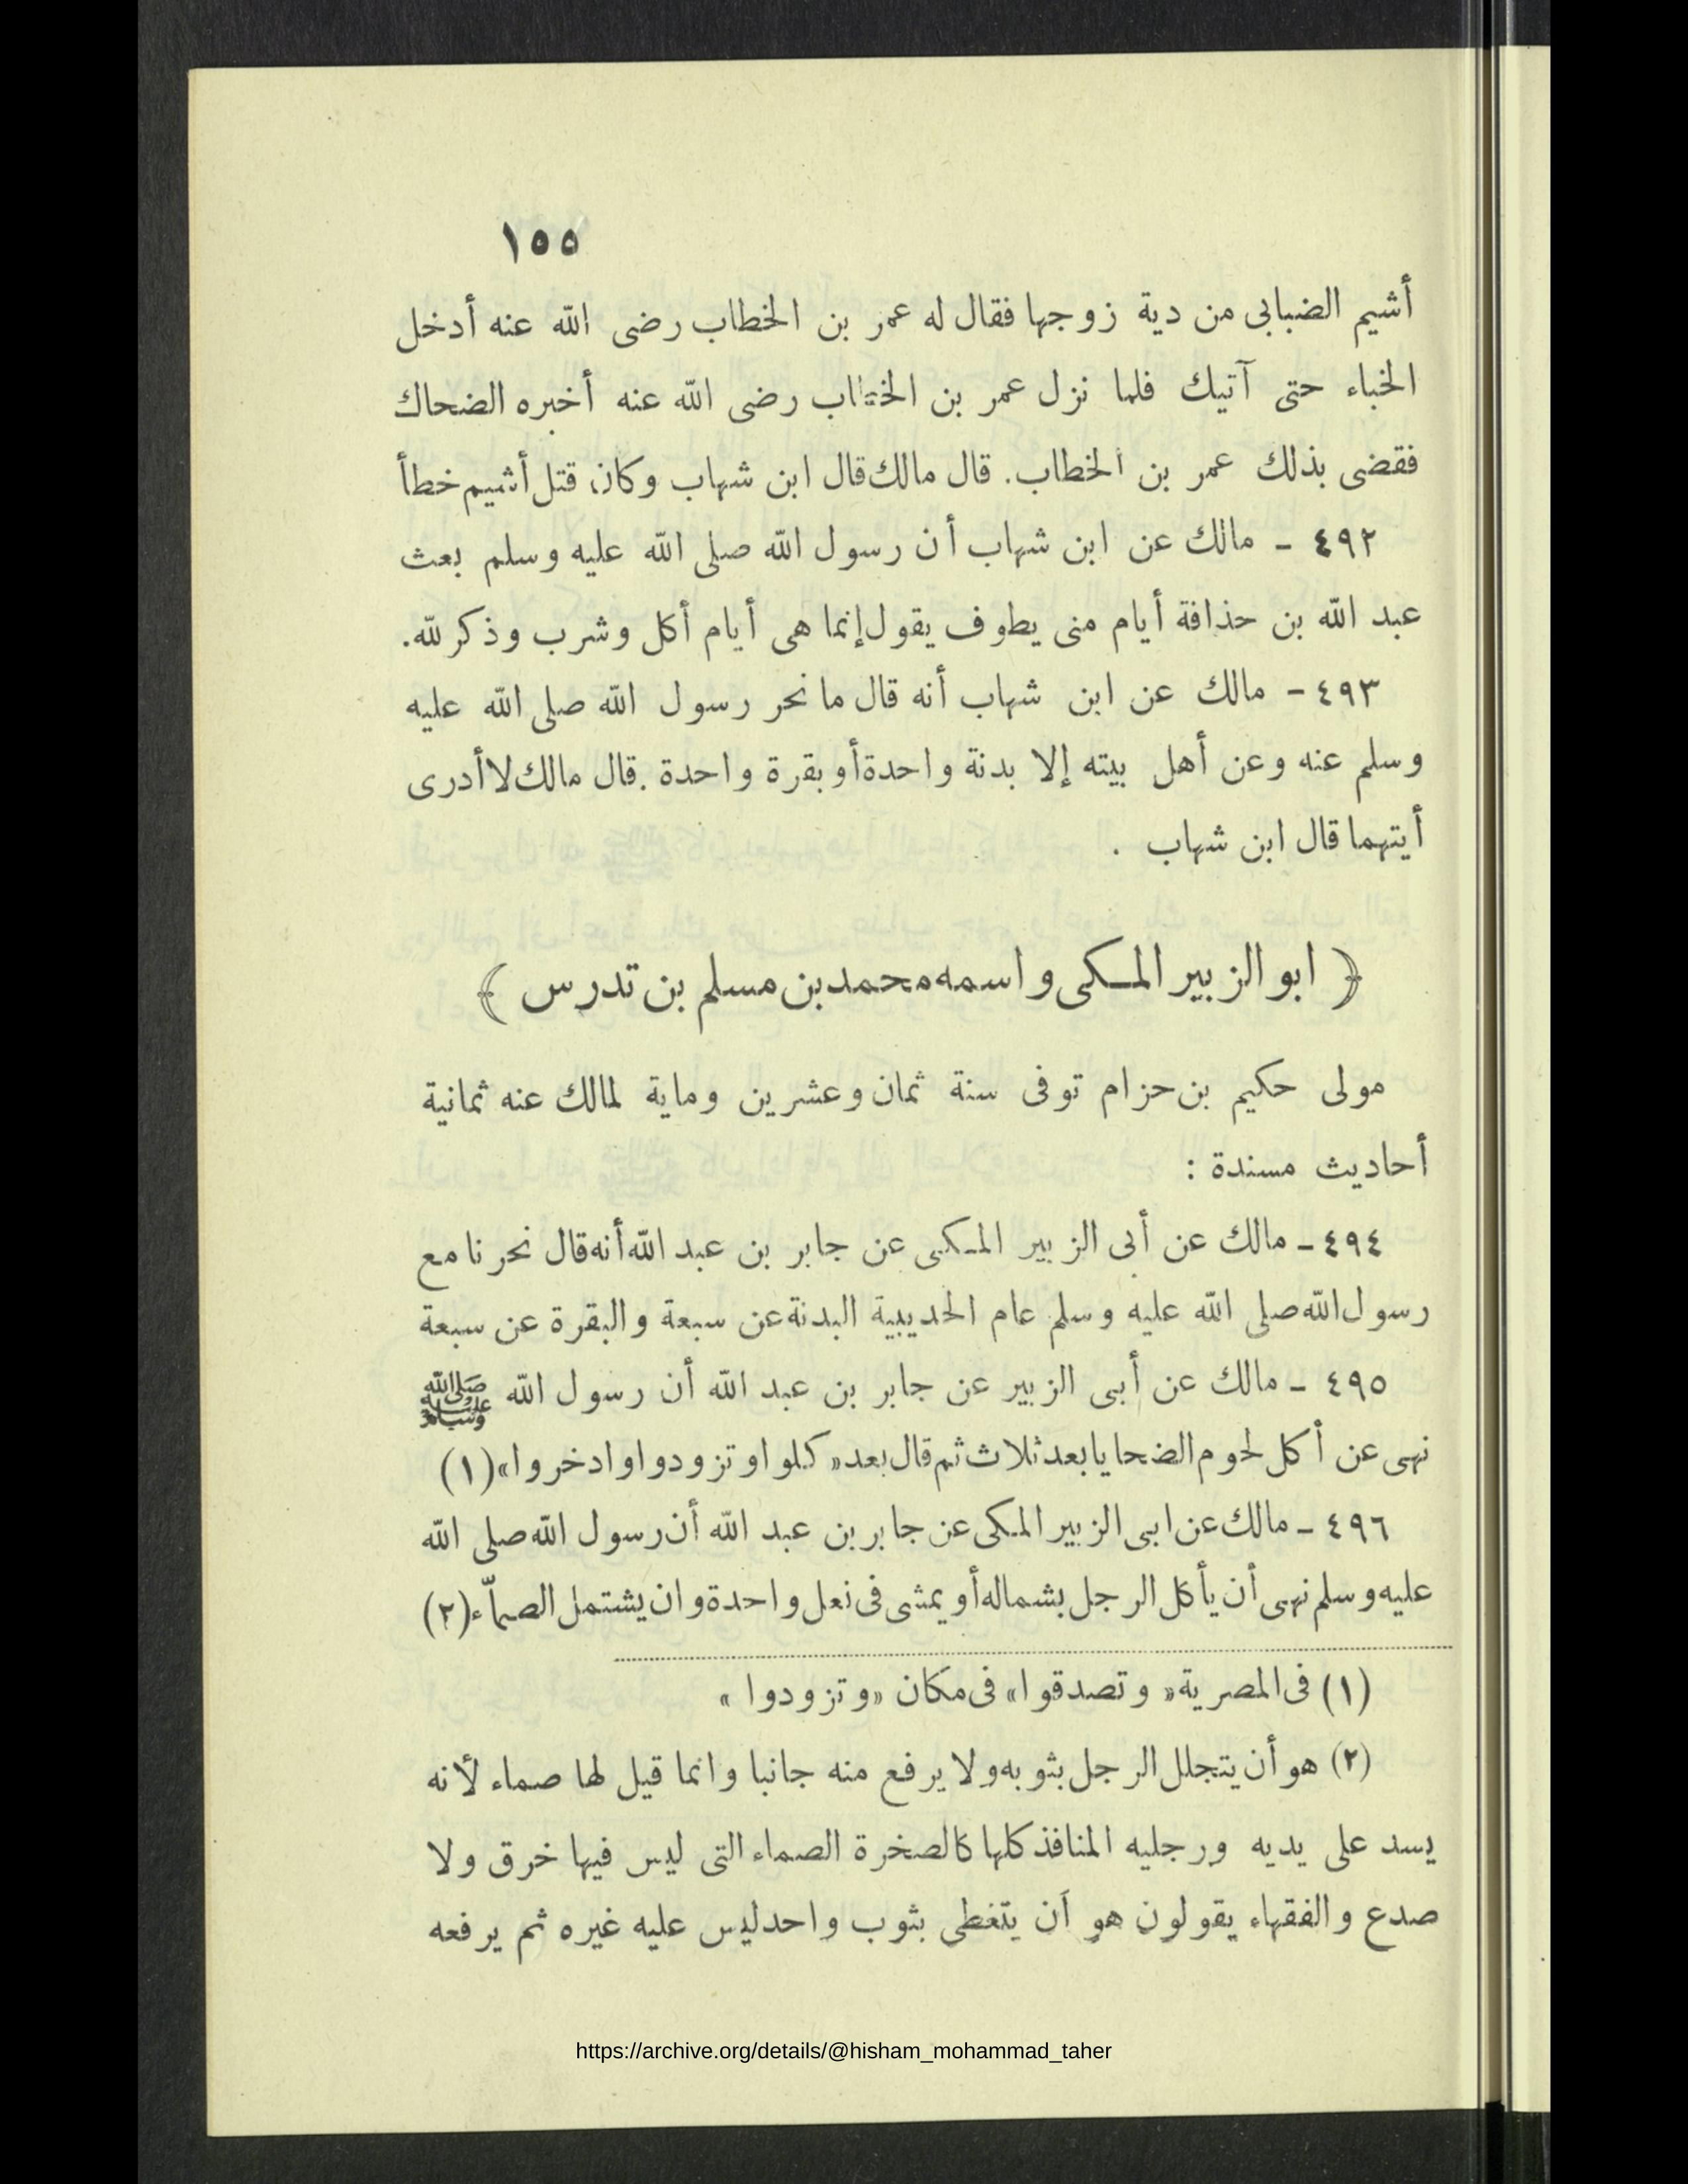 ١٥٥
أشيم الضبابى من دية زوجها فقال له عمر بن الخطاب رضى الله عنه أدخل
الخباء حتى آتيك فلما نزل عمر بن الخطاب رضى الله عنه أخبره الضحاك
فقضى بذلك عمر بن الخطاب. قال مالك قال ابن شهاب وكان قتل أشيم خطأ
٤٩٢ - مالك عن ابن شهاب أن رسول الله صلى الله عليه وسلم بعث
عبد الله بن حذافة أيام منى يطوف يقول إنما هى أيام أكل وشرب وذكر لله.
٤٩٣ - مالك عن ابن شهاب أنه قال ما نحر رسول الله صلى الله عليه
وسلم عنه وعن أهل بيته إلا بدنة واحدة أو بقرة واحدة. قال مالك لا أدرى
أيتهما قال ابن شهاب .
﴿ ابو الزبير المكى واسمه محمد بن مسلم بن تدرس ﴾
مولى حكيم بن حزام توفى سنة ثمان وعشرين وماية لمالك عنه ثمانية
أحاديث مسندة :
٤٩٤ - مالك عن أبى الزبير المكى عن جابر بن عبد الله أنه قال نحرنا مع
رسول الله صلى الله عليه وسلم عام الحديبية البدنة عن سبعة والبقرة عن سبعة
٤٩٥ - مالك عن أبى الزبير عن جابر بن عبد الله أن رسول الله ﷺ
نهى عن أكل لحوم الضحايا بعد ثلاث ثم قال بعد «كلوا وتزودوا وادخروا» (١)
٤٩٦ - مالك عن ابى الزبير المكى عن جابر بن عبد الله أن رسول الله صلى الله
عليه وسلم نهى أن يأكل الرجل بشماله أو يمشى فى نعل واحدة وان يشتمل الصمآء (٢)
(١) فى المصرية «وتصدقوا» فى مكان «وتزودوا»
(٢) هو أن يتجلل الرجل بثوبه ولا يرفع منه جانبا وانما قيل لها صماء لأنه
يسد على يديه ورجليه المنافذ كلها كالصخرة الصماء التى ليس فيها خرق ولا
صدع والفقهاء يقولون هو أن يتغطى بثوب واحد ليس عليه غيره ثم يرفعه
https://archive.org/details/@hisham_mohammad_taher